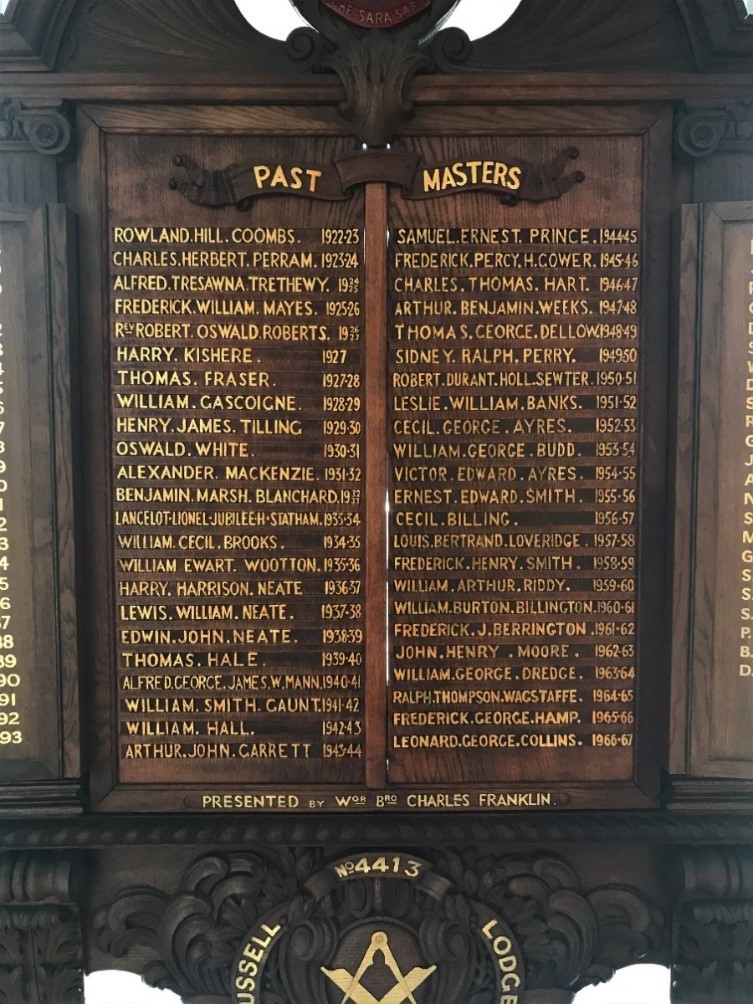 SARA SAR
PAST MASTERS
ROWLAND.HILL.COOMBS. 1922-23
CHARLES.HERBERT.PERRAM. 1923-24
ALFRED.TRESAWNA.TRETHEWY. 1924/25
FREDERICK.WILLIAM.MAYES. 1925-26
REV ROBERT.OSWALD.ROBERTS. 1926/27
HARRY.KISHERE. 1927
THOMAS.FRASER. 1927-28
WILLIAM.GASCOIGNE. 1928-29
HENRY.JAMES.TILLING 1929-30
OSWALD.WHITE. 1930-31
ALEXANDER.MACKENZIE. 1931-32
BENJAMIN.MARSH.BLANCHARD. 1932/33
LANCELOT.LIONEL.JUBILEE.H.STATHAM. 1933-34
WILLIAM.CECIL.BROOKS. 1934-35
WILLIAM EWART.WOOTTON. 1935-36
HARRY.HARRISON.NEATE 1936-37
LEWIS.WILLIAM.NEATE. 1937-38
EDWIN.JOHN.NEATE. 1938-39
THOMAS.HALE. 1939-40
ALFRED.GEORGE.JAMES.W.MANN. 1940-41
WILLIAM.SMITH.GAUNT. 1941-42
WILLIAM.HALL. 1942-43
ARTHUR.JOHN.GARRETT 1943-44
SAMUEL.ERNEST.PRINCE. 1944-45
FREDERICK.PERCY.H.GOWER. 1945-46
CHARLES.THOMAS.HART. 1946-47
ARTHUR.BENJAMIN.WEEKS. 1947-48
THOMAS.GEORGE.DELLOW. 1948-49
SIDNEY.RALPH.PERRY. 1949-50
ROBERT.DURANT.HOLL.SEWTER. 1950-51
LESLIE.WILLIAM.BANKS. 1951-52
CECIL.GEORGE.AYRES. 1952-53
WILLIAM.GEORGE.BUDD. 1953-54
VICTOR.EDWARD.AYRES. 1954-55
ERNEST.EDWARD.SMITH. 1955-56
CECIL.BILLING. 1956-57
LOUIS.BERTRAND.LOVERIDGE. 1957-58
FREDERICK.HENRY.SMITH. 1958-59
WILLIAM.ARTHUR.RIDDY. 1959-60
WILLIAM.BURTON.BILLINGTON. 1960-61
FREDERICK.J.BERRINGTON. 1961-62
JOHN.HENRY.MOORE. 1962-63
WILLIAM.GEORGE.DREDGE. 1963-64
RALPH.THOMPSON.WAGSTAFFE. 1964-65
FREDERICK.GEORGE.HAMP. 1965-66
LEONARD.GEORGE.COLLINS. 1966-67
PRESENTED BY WOR BRO CHARLES FRANKLIN.
No 4413
USSELL LODGE